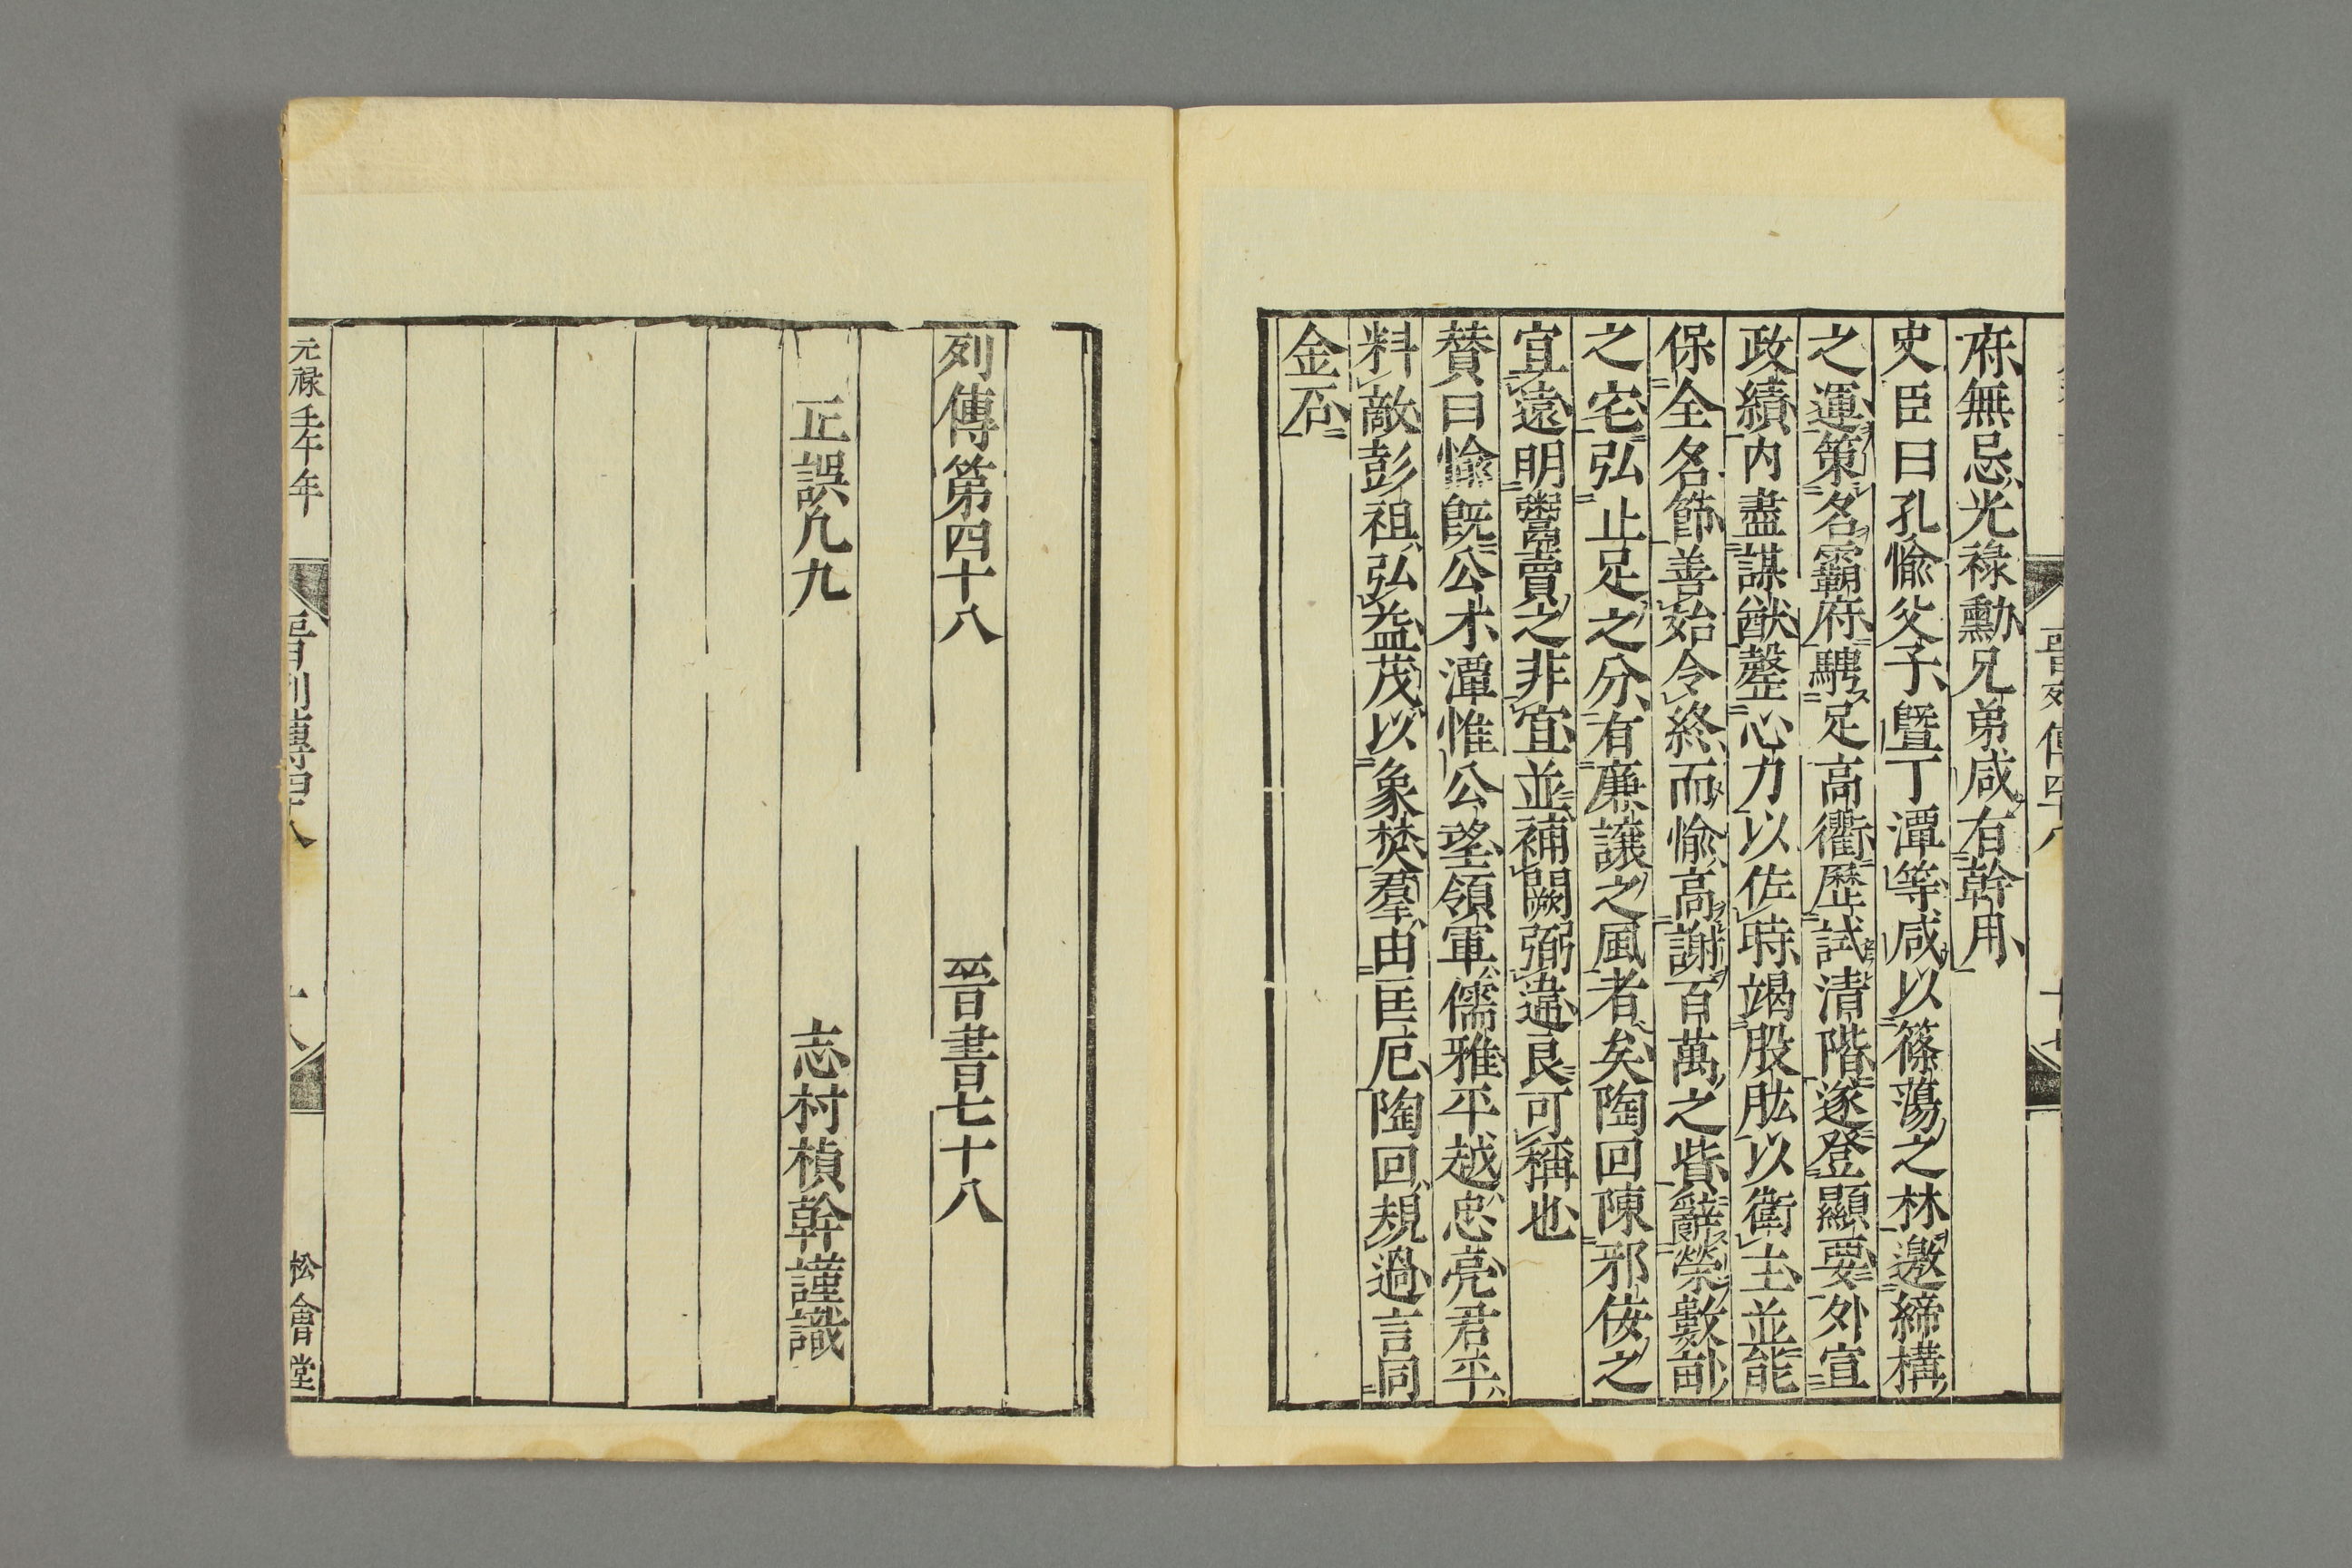 府無忌光祿勲兄弟咸有幹用
史臣曰孔愉父子曁丁潭等咸以篠蕩之林邀締構
之運策名霸府騁足高衢歷試清階遂登顯要外宣
政績内盡謀猷罄心力以佐時竭股肱以衛主並能
保全名節善始令終而愉高謝百萬之貲辭榮數畝
之宅弘止足之分有廉讓之風者矣陶回陳邪佞之
宜遠明鬻賣之非宜並補闕弼違良可稱也
賛曰愉旣公才潭惟公望領軍儒雅平越忠亮君平
料敵彭祖弘益茂以象焚羣由匡厄陶回規過言同
金石
晉列傳四十八
十七
列傳第四十八 晉書七十八
正誤凡九 志村楨幹謹識
元禄壬午年 晉列傳四十八 十八 松會堂